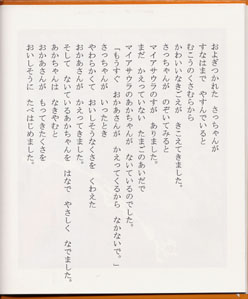 およぎつかれた さっちゃんが
すなはまで やすんでいると
むこうのくさむらから
かわいいなきごえが きこえてきました。
さっちゃんが のぞいてみると
マイアサウラのすが ありました。
まだ かえっていない たまごのあいだで
マイアサウラのあかちゃんが ないているのでした。
「もうすぐ おかあさんが かえってくるから なかないで。」
さっちゃんが いったとき
やわらかくて おいしそうなくさを くわえた
おかあさんが かえってきました。
そして ないているあかちゃんを はなで やさしく なでました。
あかちゃんは なきやむと
おかあさんが もってきたくさを
おいしそうに たべはじめました。